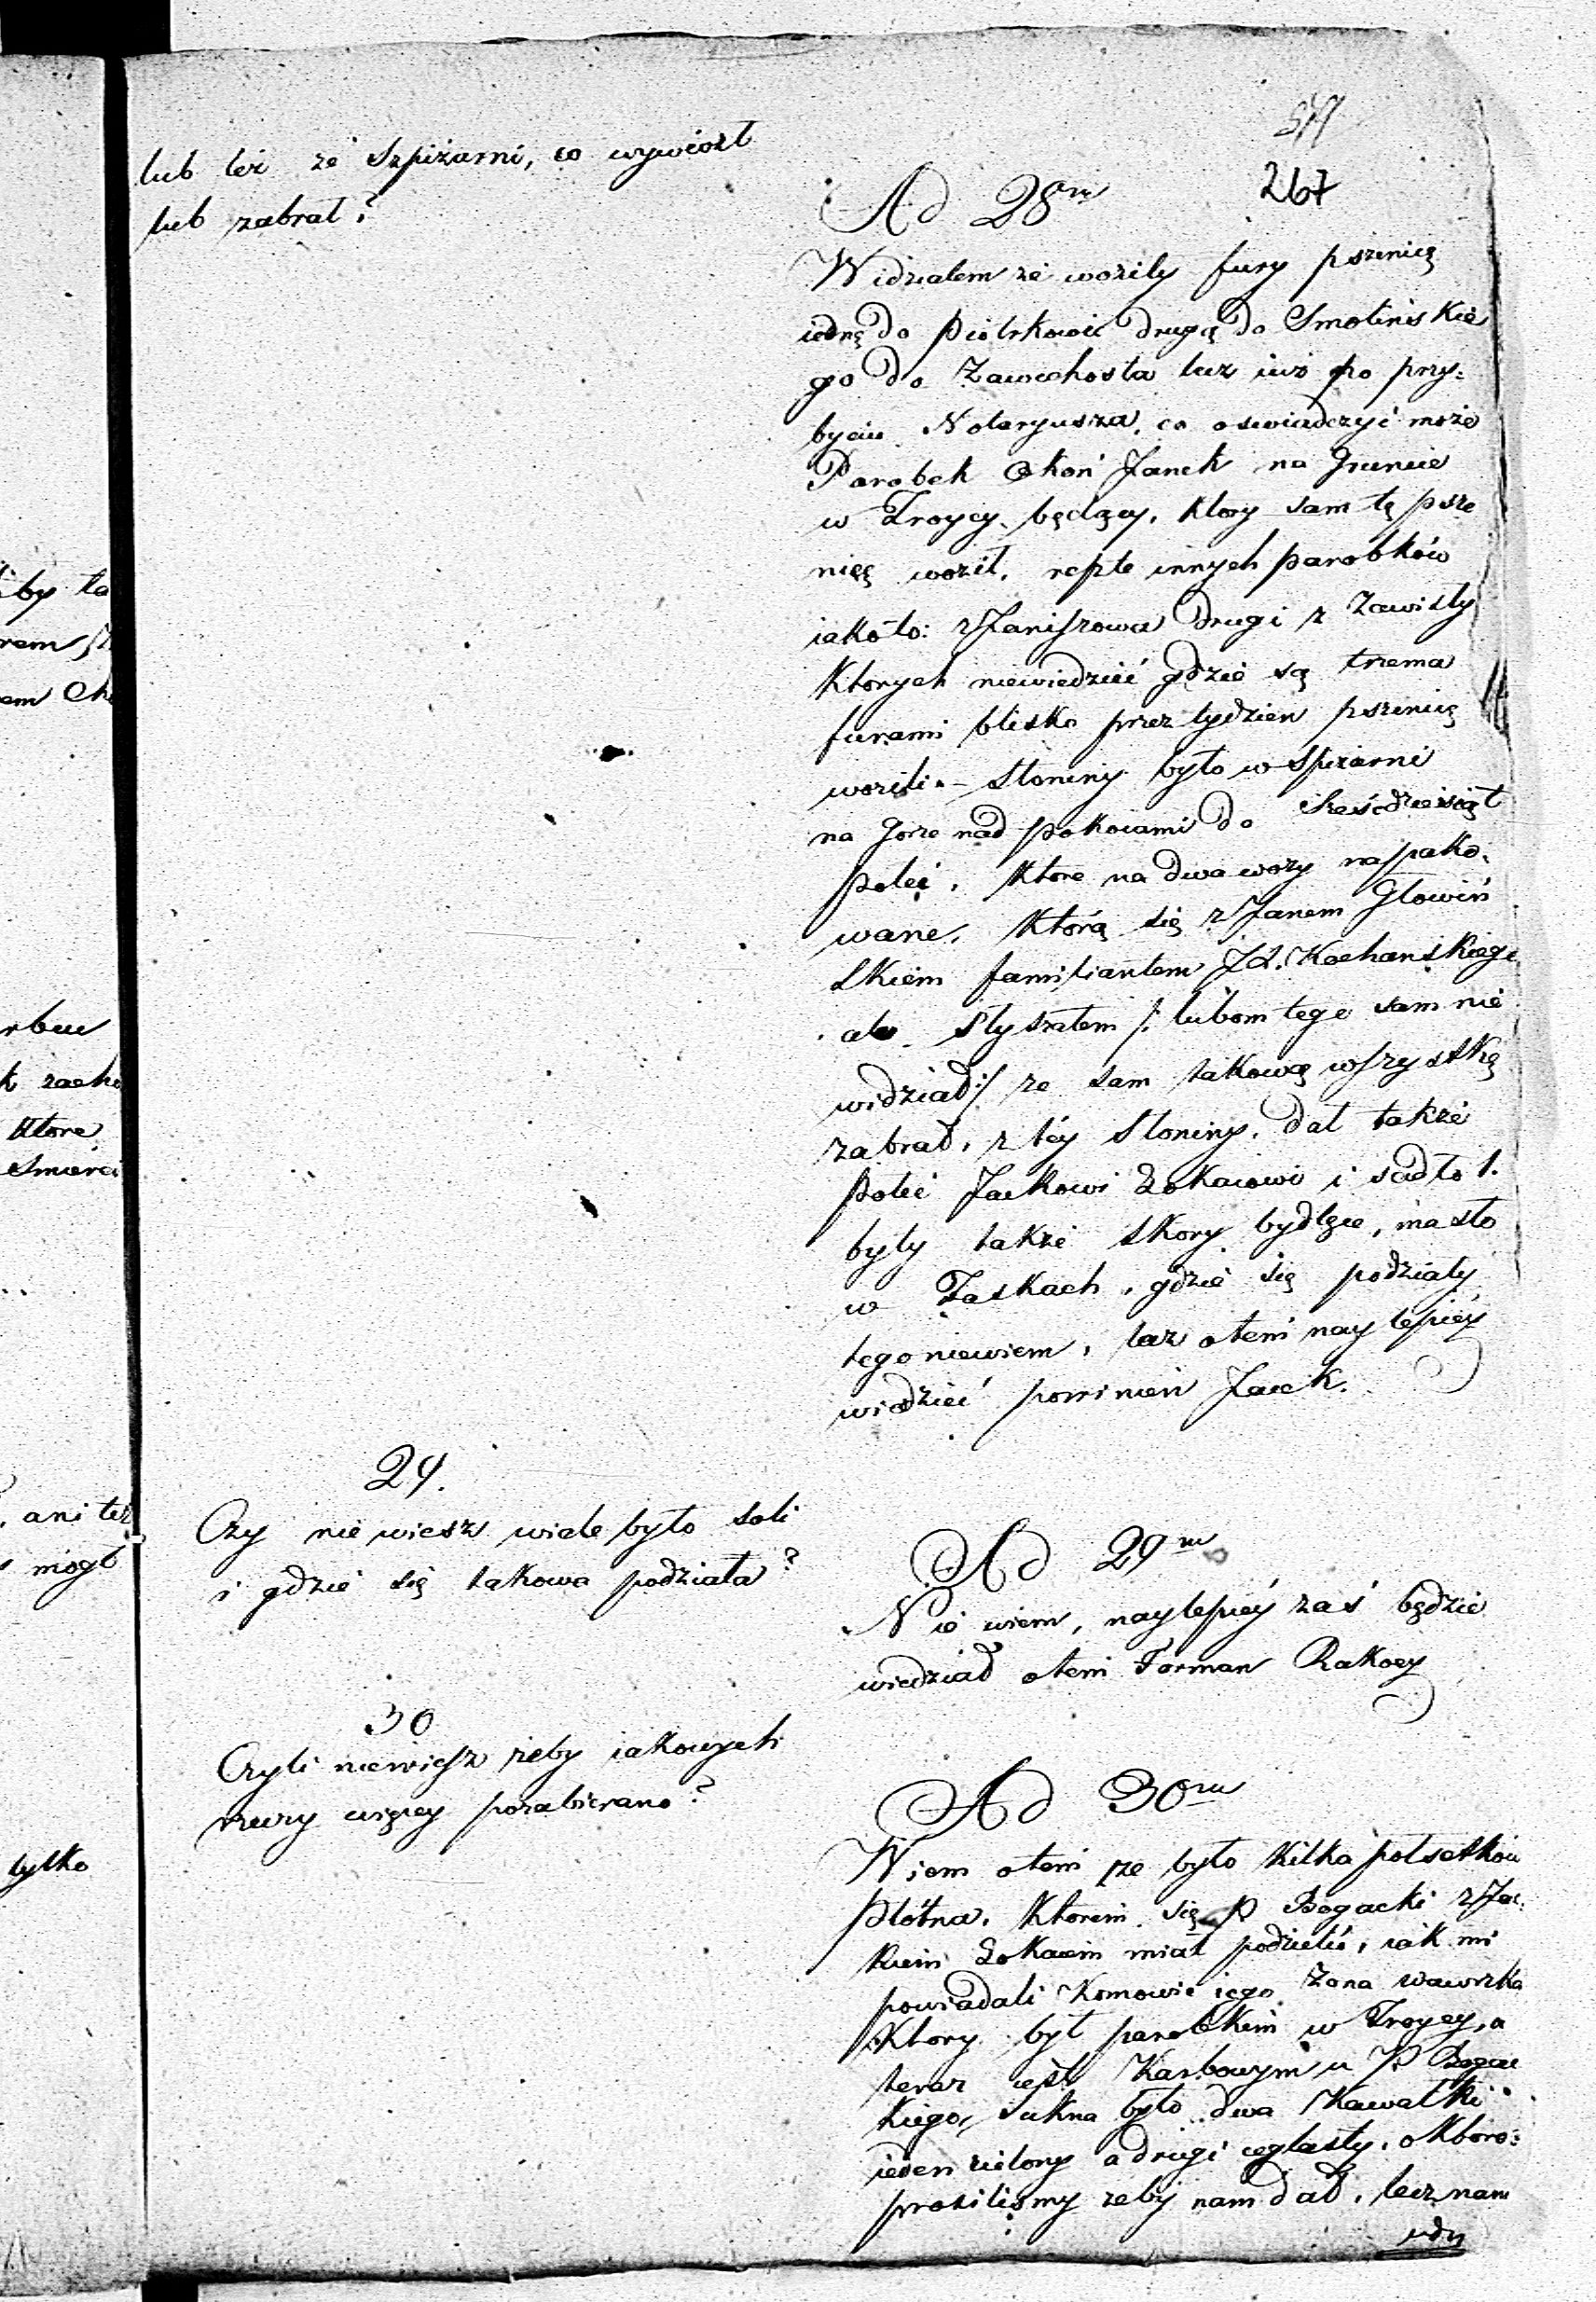 267
lub też ze Szpiżarni, co wywiozł
lub zabrał?
Ad 28m
Widziałem że woziły fury pszenicę
iednę do Piotrkowic drugą do Smolińskie
go do Zawichosta lecz iuż po przy=
byciu Notaryusza, co oswiadczyć może
Parobek Okoń Janek na Gruncie
w Troycy będący, ktory sam tę psze
nicę woził, innych parobków
iako to: z Janiszowa drugi z Zawisły
ktorych niewiedzieć gdzie są trzema
furami blisko przez tydzien pszenicę
wozili - Słoniny było w Spiżarni
na Gorze nad pokoiami do Sześcdziesiąt
połci, ktore na dwa wozy napako,
wane, którą się z Janem Głowiń
skiem familiantem Jd. Kochanskiego
ale słyszałem /: lubom tego sam nie
widział :/ ze sam takową wszystkę
zabrał, z téy Słoniny, dał także
połeć Jackowi Lokaiowi i sadło 1.
były także skory bydlęce, masło
w Faskach, gdzie się podziały
tego niewiem, lecz otem naylepiéy
wiedzieć powinien Jacek.
29.
Czy nie wiesz wiele było soli
i gdzie się takowa podziała?
Ad 29m
Nie wiem, naylepiéy zaś będzie
wiedział otem Forman Rakocy
30
Czyli niewiesz żeby iakowych
rzeczy więcey pozabierano?
Ad 30m
Wiem otem że było kilka połsetków
Płótna, ktorem się P Bogacki z Jac=
kiem Lokaiem miał podzielić, iak mi
powiadali Komowie iego Zona Wawrzka
ktory był parobkiem w Troycy, a
teraz iest Karbowym u P Bogac
kiego, sukna było dwa Kawałki
ieden zielony a drugi ceglasty, o ktore
prosiliśmy zeby nam dał, lecz nam